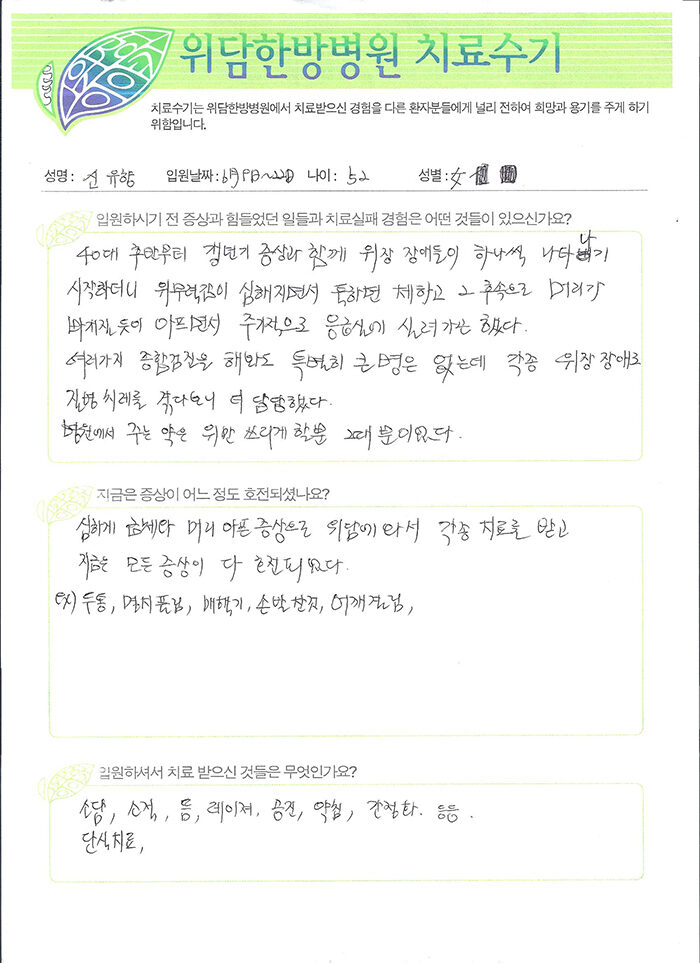 위담한방병원 치료수기
치료수기는 위담한방병원에서 치료받으신 경험을 다른 환자분들에게 널리 전하여 희망과 용기를 주게 하기
위함입니다.
성명: 신유향 입원날짜: 6月9日~22日 나이: 52 성별: 女
입원하시기 전 증상과 힘들었던 일들과 치료실패 경험은 어떤 것들이 있으신가요?
40대 후반부터 갱년기 증상과 함께 위장 장애들이 하나씩 나타나기
시작하더니 위무력감이 심해지면서 툭하면 체하고 그 후속으로 머리가
빠개질듯이 아프면서 주기적으로 응급실에 실려가곤 했다.
여러가지 종합검진을 해봐도 특별히 큰 병은 없는데 각종 위장 장애로
질병치레를 겪다보니 더 답답했다.
병원에서 주는 약은 위만 쓰리게 할뿐 그때 뿐이었다.
지금은 증상이 어느 정도 호전되셨나요?
심하게 급체와 머리 아픈 증상으로 위담에 와서 각종 치료를 받고
지금은 모든 증상이 다 호전되었다.
ex) 두통, 명치 손발 어깨결림,
입원하셔서 치료 받으신 것들은 무엇인가요?
소담, 소적, 뜸, 레이저, 공진, 약침, 간정화. 등등.
단식치료,